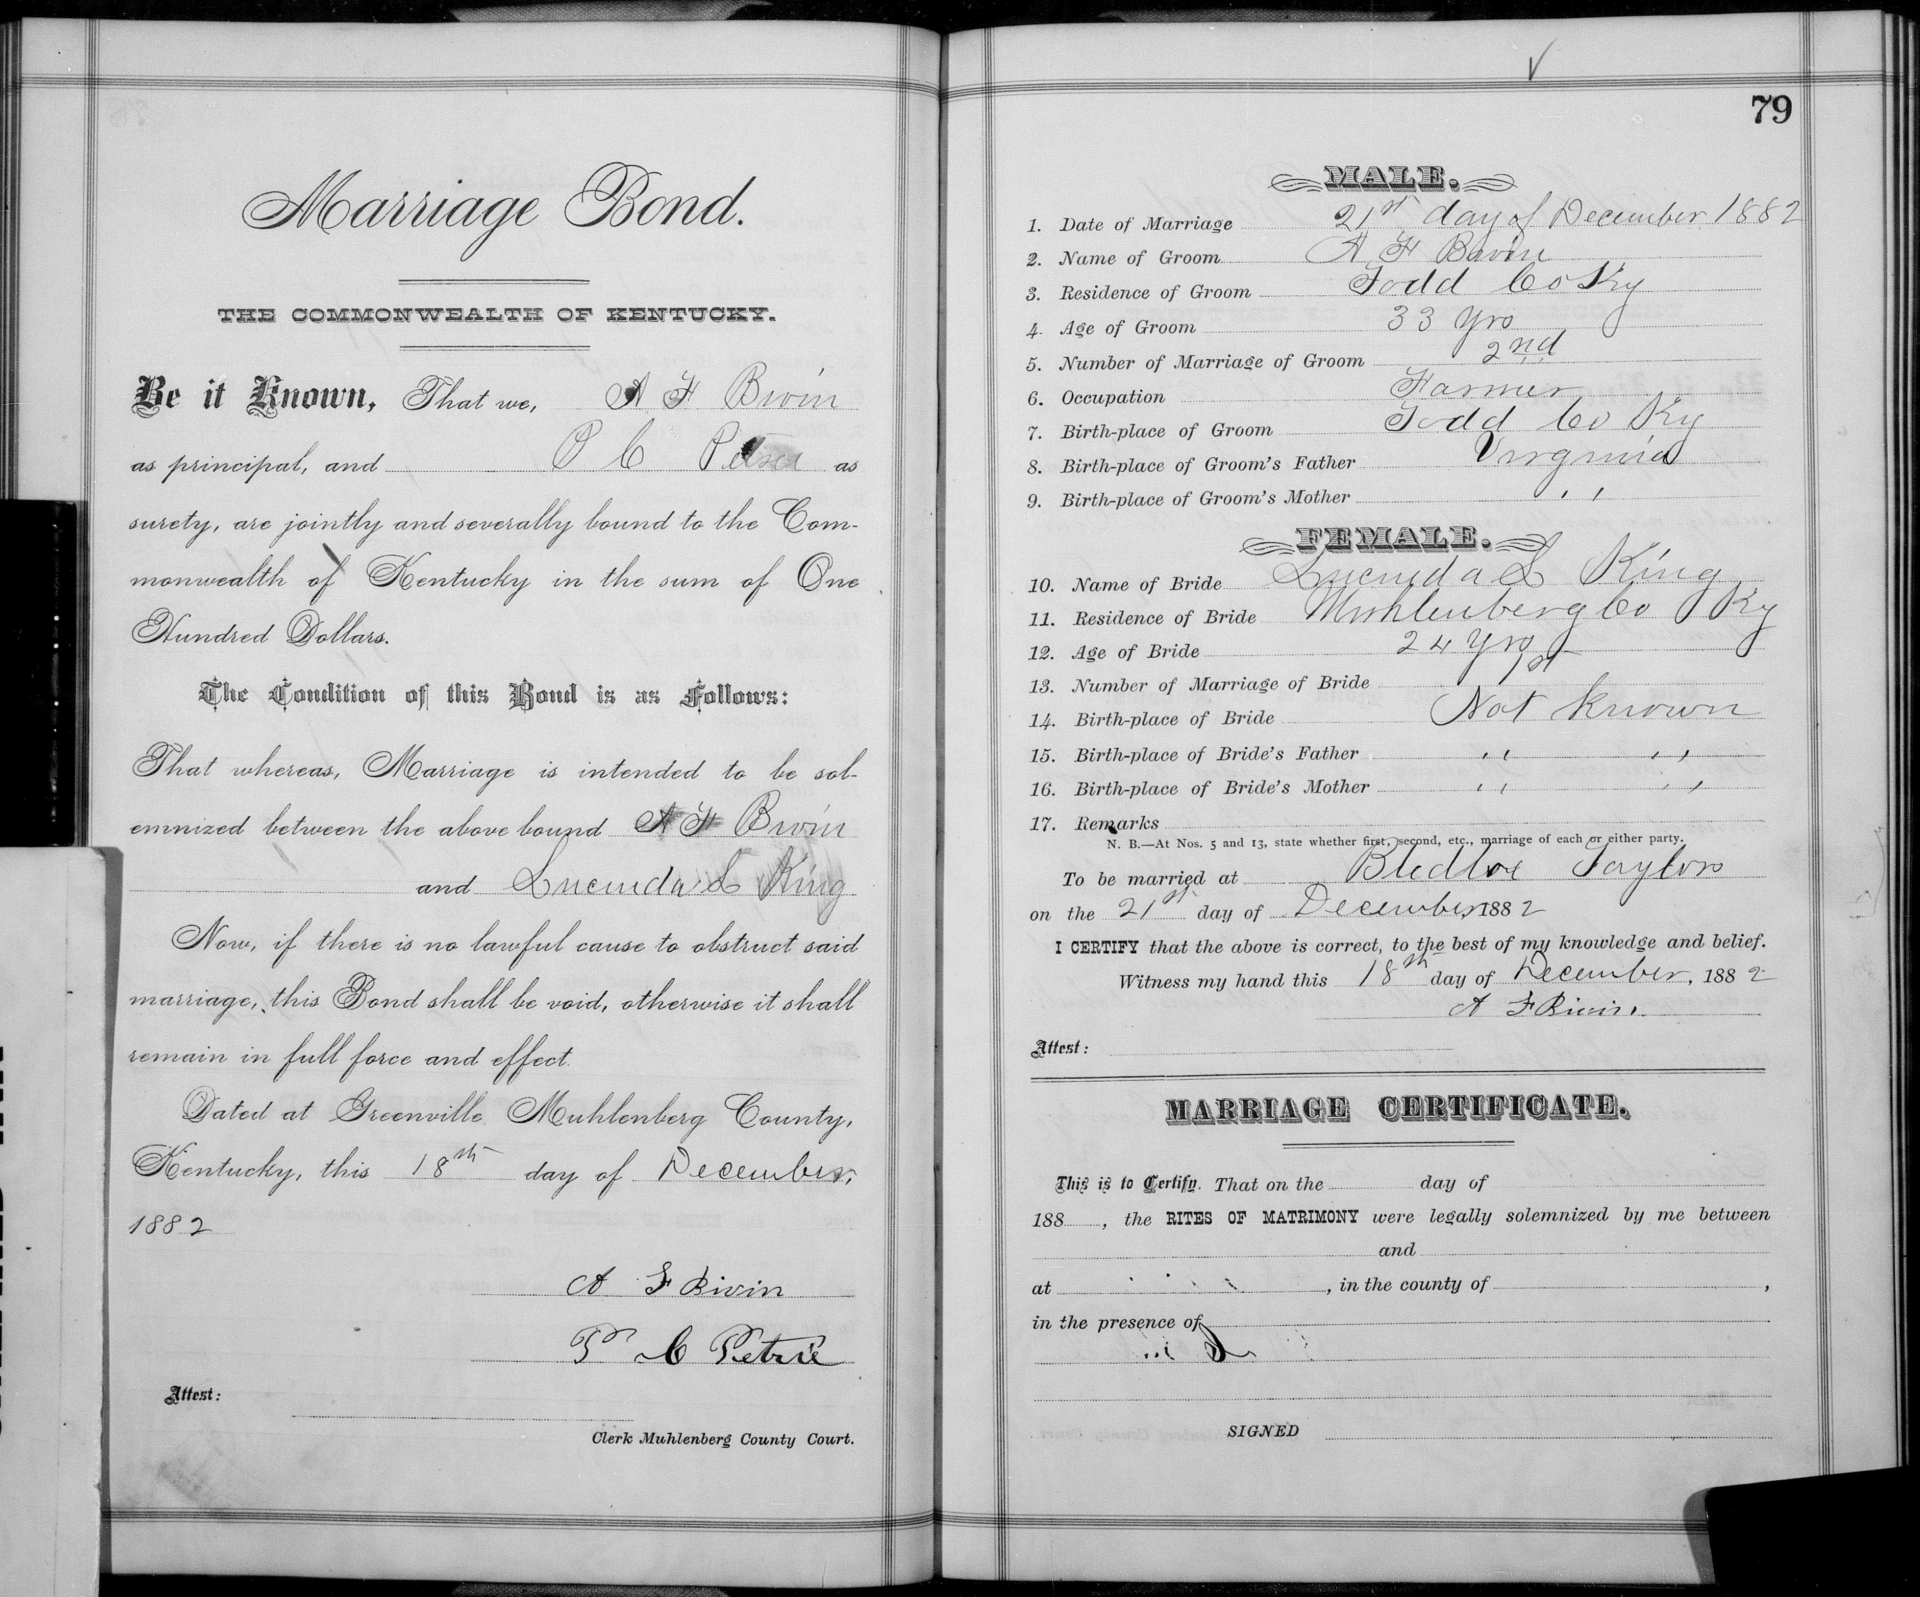 Marriage Bond.
THE COMMONWEALTH OF KENTUCKY.
Be it Known, That we, A F Bivin
as principal, and P C Petrie as
surety, are jointly and severally bound to the Com-
monwealth of Kentucky in the sum of One
Hundred Dollars.
The Condition of this Bond is as Follows:
That whereas, Marriage is intended to be sol-
emnized between the above bound A F Bivin
and Lucinda L King
Now, if there is no lawful cause to obstruct said
marriage, this Bond shall be void, otherwise it shall
remain in full force and effect.
Dated at Greenville Muhlenberg County,
Kentucky, this 18th day of December,
1882
A F Bivin
P C Petrie
Attest:
Clerk Muhlenberg County Court.
79
MALE.
1. Date of Marriage 21st day of December 1882
2. Name of Groom A F Bivin
3. Residence of Groom Todd Co Ky
4. Age of Groom 33 yrs
5. Number of Marriage of Groom 2nd
6. Occupation Farmer
7. Birth-place of Groom Todd Co Ky
8. Birth-place of Groom's Father Virginia
9. Birth-place of Groom's Mother " "
FEMALE.
10. Name of Bride Lucinda L King
11. Residence of Bride Muhlenberg Co Ky
12. Age of Bride 24 yrs
13. Number of Marriage of Bride 1st
14. Birth-place of Bride Not Known
15. Birth-place of Bride's Father " "
16. Birth-place of Bride's Mother " "
17. Remarks
N. B.—At Nos. 5 and 13, state whether first, second, etc., marriage of each or either party.
To be married at Bledsoe Taylors
on the 21st day of December 1882
I CERTIFY that the above is correct, to the best of my knowledge and belief.
Witness my hand this 18th day of December, 1882
A F Bivin.
Attest:
MARRIAGE CERTIFICATE.
This is to Certify. That on the day of
188 , the RITES OF MATRIMONY were legally solemnized by me between
and
at , in the county of ,
in the presence of
SIGNED